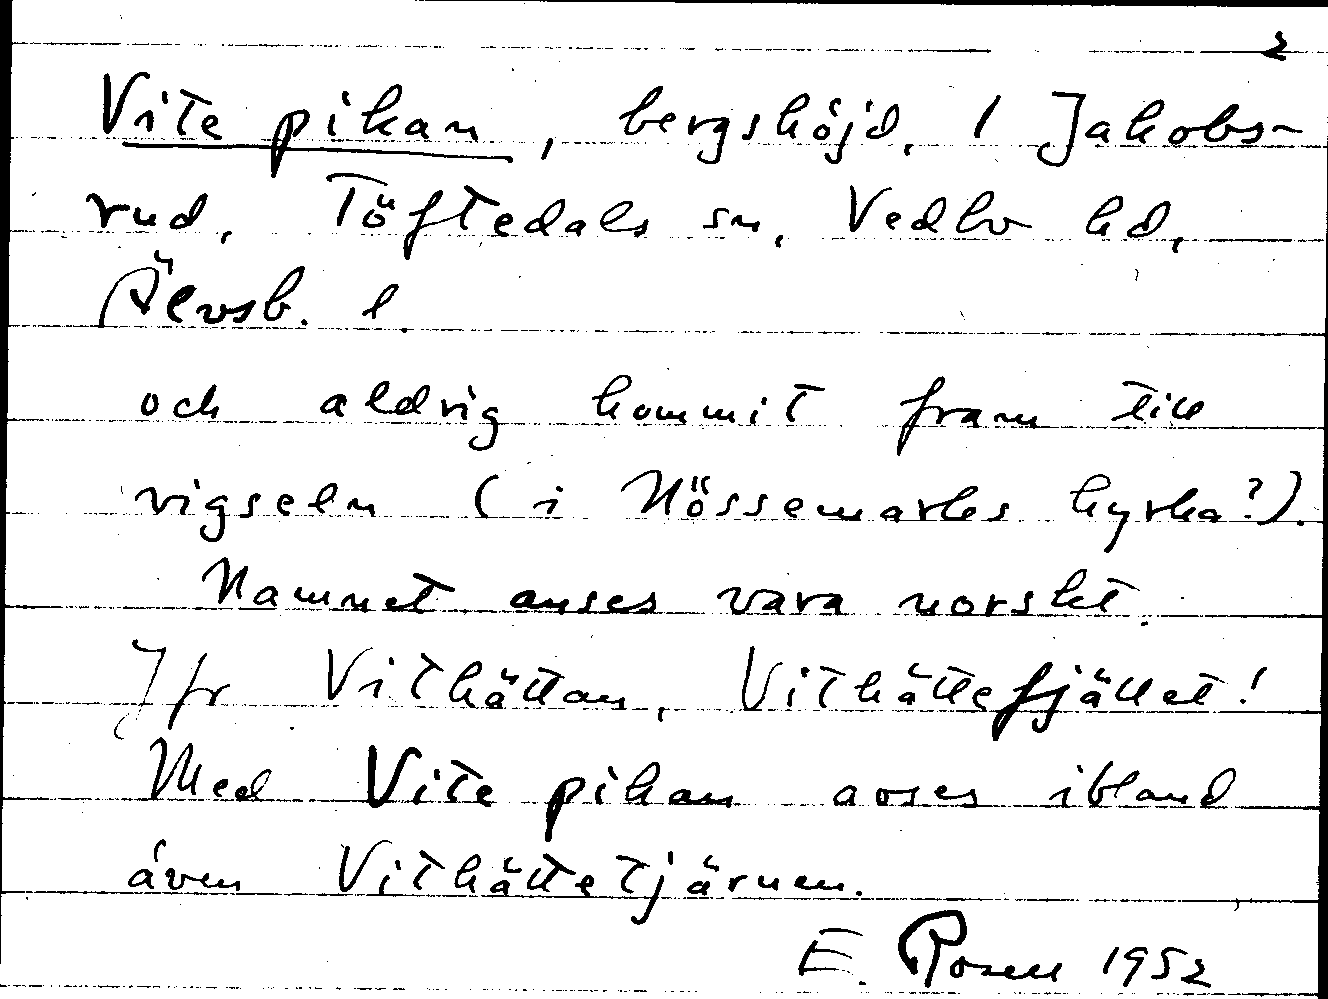 2
Vite pikan, bergshöjd, 1 Jakobs-
rud, Töftedals sn, Vedbo hd,
Älvsb. l.
och aldrig kommit fram till
vigseln (i Nössemarks kyrka?).
Namnet anses vara norskt.
Jfr Vithättan, Vithättefjället!
Med Vite pikan aoses ibland
även Vithättetjärnen.
E. Rosell 1952